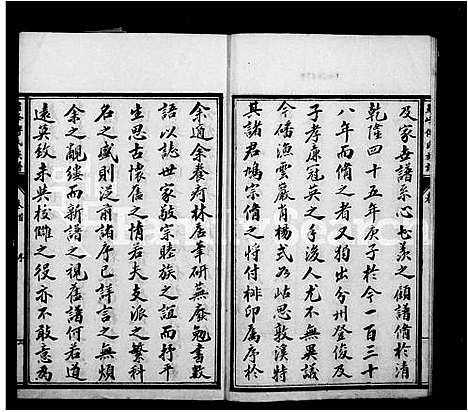 及家世譜系心乜羨之顧譜脩於清
乾隆四十五年庚子於今一百三十
八年而脩之者又出分州登俊及
子孝廉冠英之手後人尤不無異議
今磻漁雲嚴肖楊式為岵思敦漢特
其諸君鳩宗脩之將付梓印属序於
余適余養疴林居筆研蕪廢勉書數
語以誌世家敬宗睦族之誼而抒平
生思古懷舊之情若夫支派之繁科
名之盛則前諸序已詳言之無煩
余之覼縷而新譜之視舊譜何若道
遠莫致未與校讎之役亦不敢意為
卷首
序